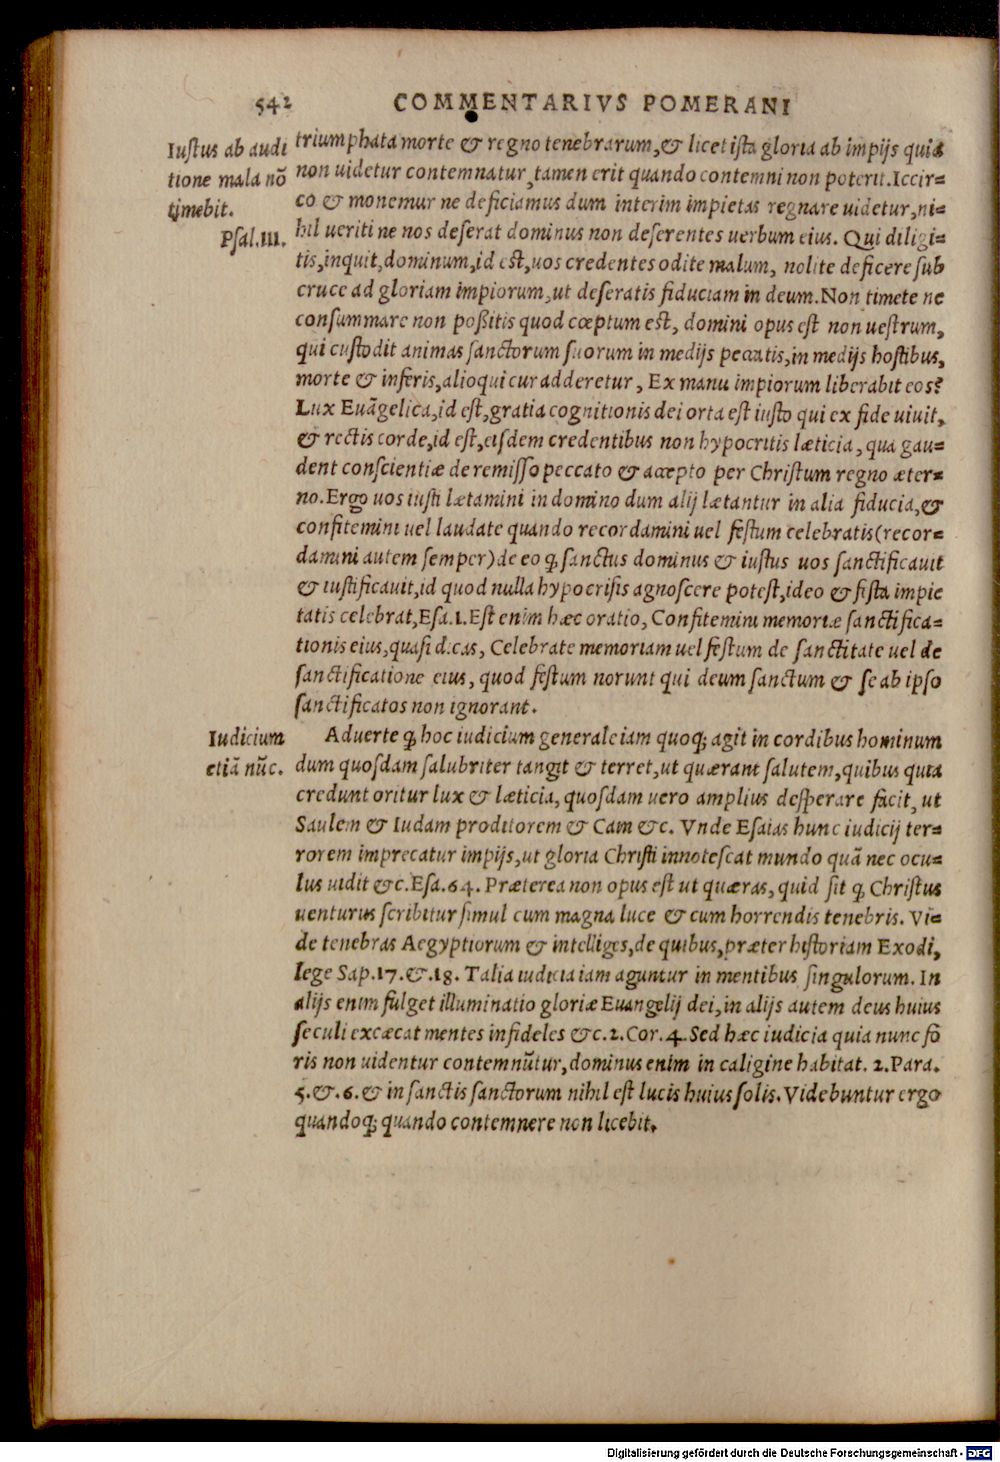 542 COMMENTARIVS POMERANI
Iustus ab audi
tione mala nō
timebit.
Psal.III.
triumphata morte & regno tenebrarum,& licet ista gloria ab impijs quia
non uidetur contemnatur,tamen erit quando contemni non poterit.Iccir=
co & monemur ne deficiamus dum interim impietas regnare uidetur,ni=
hil ueriti ne nos deserat dominus non deserentes uerbum eius. Qui diligi=
tis,inquit,dominum,id est,uos credentes odite malum, nolite deficere sub
cruce ad gloriam impiorum,ut deseratis fiduciam in deum.Non timete ne
consummare non poßitis quod cœptum est, domini opus est non uestrum,
qui custodit animas sanctorum suorum in medijs peccatis,in medijs hostibus,
morte & inferis,alioqui cur adderetur, Ex manu impiorum liberabit eos?
Lux Euāgelica,id est,gratia cognitionis dei orta est iusto qui ex fide uiuit,
& rectis corde,id est,eisdem credentibus non hypocritis læticia, qua gau=
dent conscientiæ de remisso peccato & accepto per Christum regno æter=
no.Ergo uos iusti lætamini in domino dum alij lætantur in alia fiducia,&
confitemini uel laudate quando recordamini uel festum celebratis(recor=
damini autem semper)de eo ꝙ sanctus dominus & iustus uos sanctificauit
& iustificauit,id quod nulla hypocrisis agnoscere potest,ideo & festa impie
tatis celebrat,Esa.1.Est enim hæc oratio, Confitemini memoriæ sanctifica=
tionis eius,quasi dicas, Celebrate memoriam uel festum de sanctitate uel de
sanctificatione eius, quod festum norunt qui deum sanctum & se ab ipso
sanctificatos non ignorant.
Iudicium
etiā nūc.
Aduerte ꝙ hoc iudicium generale iam quoq; agit in cordibus hominum
dum quosdam salubriter tangit & terret,ut quærant salutem,quibus quia
credunt oritur lux & læticia, quosdam uero amplius desperare facit, ut
Saulem & Iudam proditorem & Cain &c. Vnde Esaias hunc iudicij ter=
rorem imprecatur impijs,ut gloria Christi innotescat mundo quā nec ocu=
lus uidit &c.Esa.64. Præterea non opus est ut quæras, quid sit ꝙ Christus
uenturus scribitur simul cum magna luce & cum horrendis tenebris. Vi=
de tenebras Aegyptiorum & intelliges,de quibus,præter historiam Exodi,
lege Sap.17.&.18. Talia iudicia iam aguntur in mentibus singulorum. In
alijs enim fulget illuminatio gloriæ Euangelij dei,in alijs autem deus huius
seculi excæcat mentes infideles &c.2.Cor.4.Sed hæc iudicia quia nunc fo
ris non uidentur contemnūtur,dominus enim in caligine habitat. 2.Para.
5.&.6.& in sanctis sanctorum nihil est lucis huius solis.Videbuntur ergo
quandoq; quando contemnere non licebit.
Digitalisierung gefördert durch die Deutsche Forschungsgemeinschaft - DFG